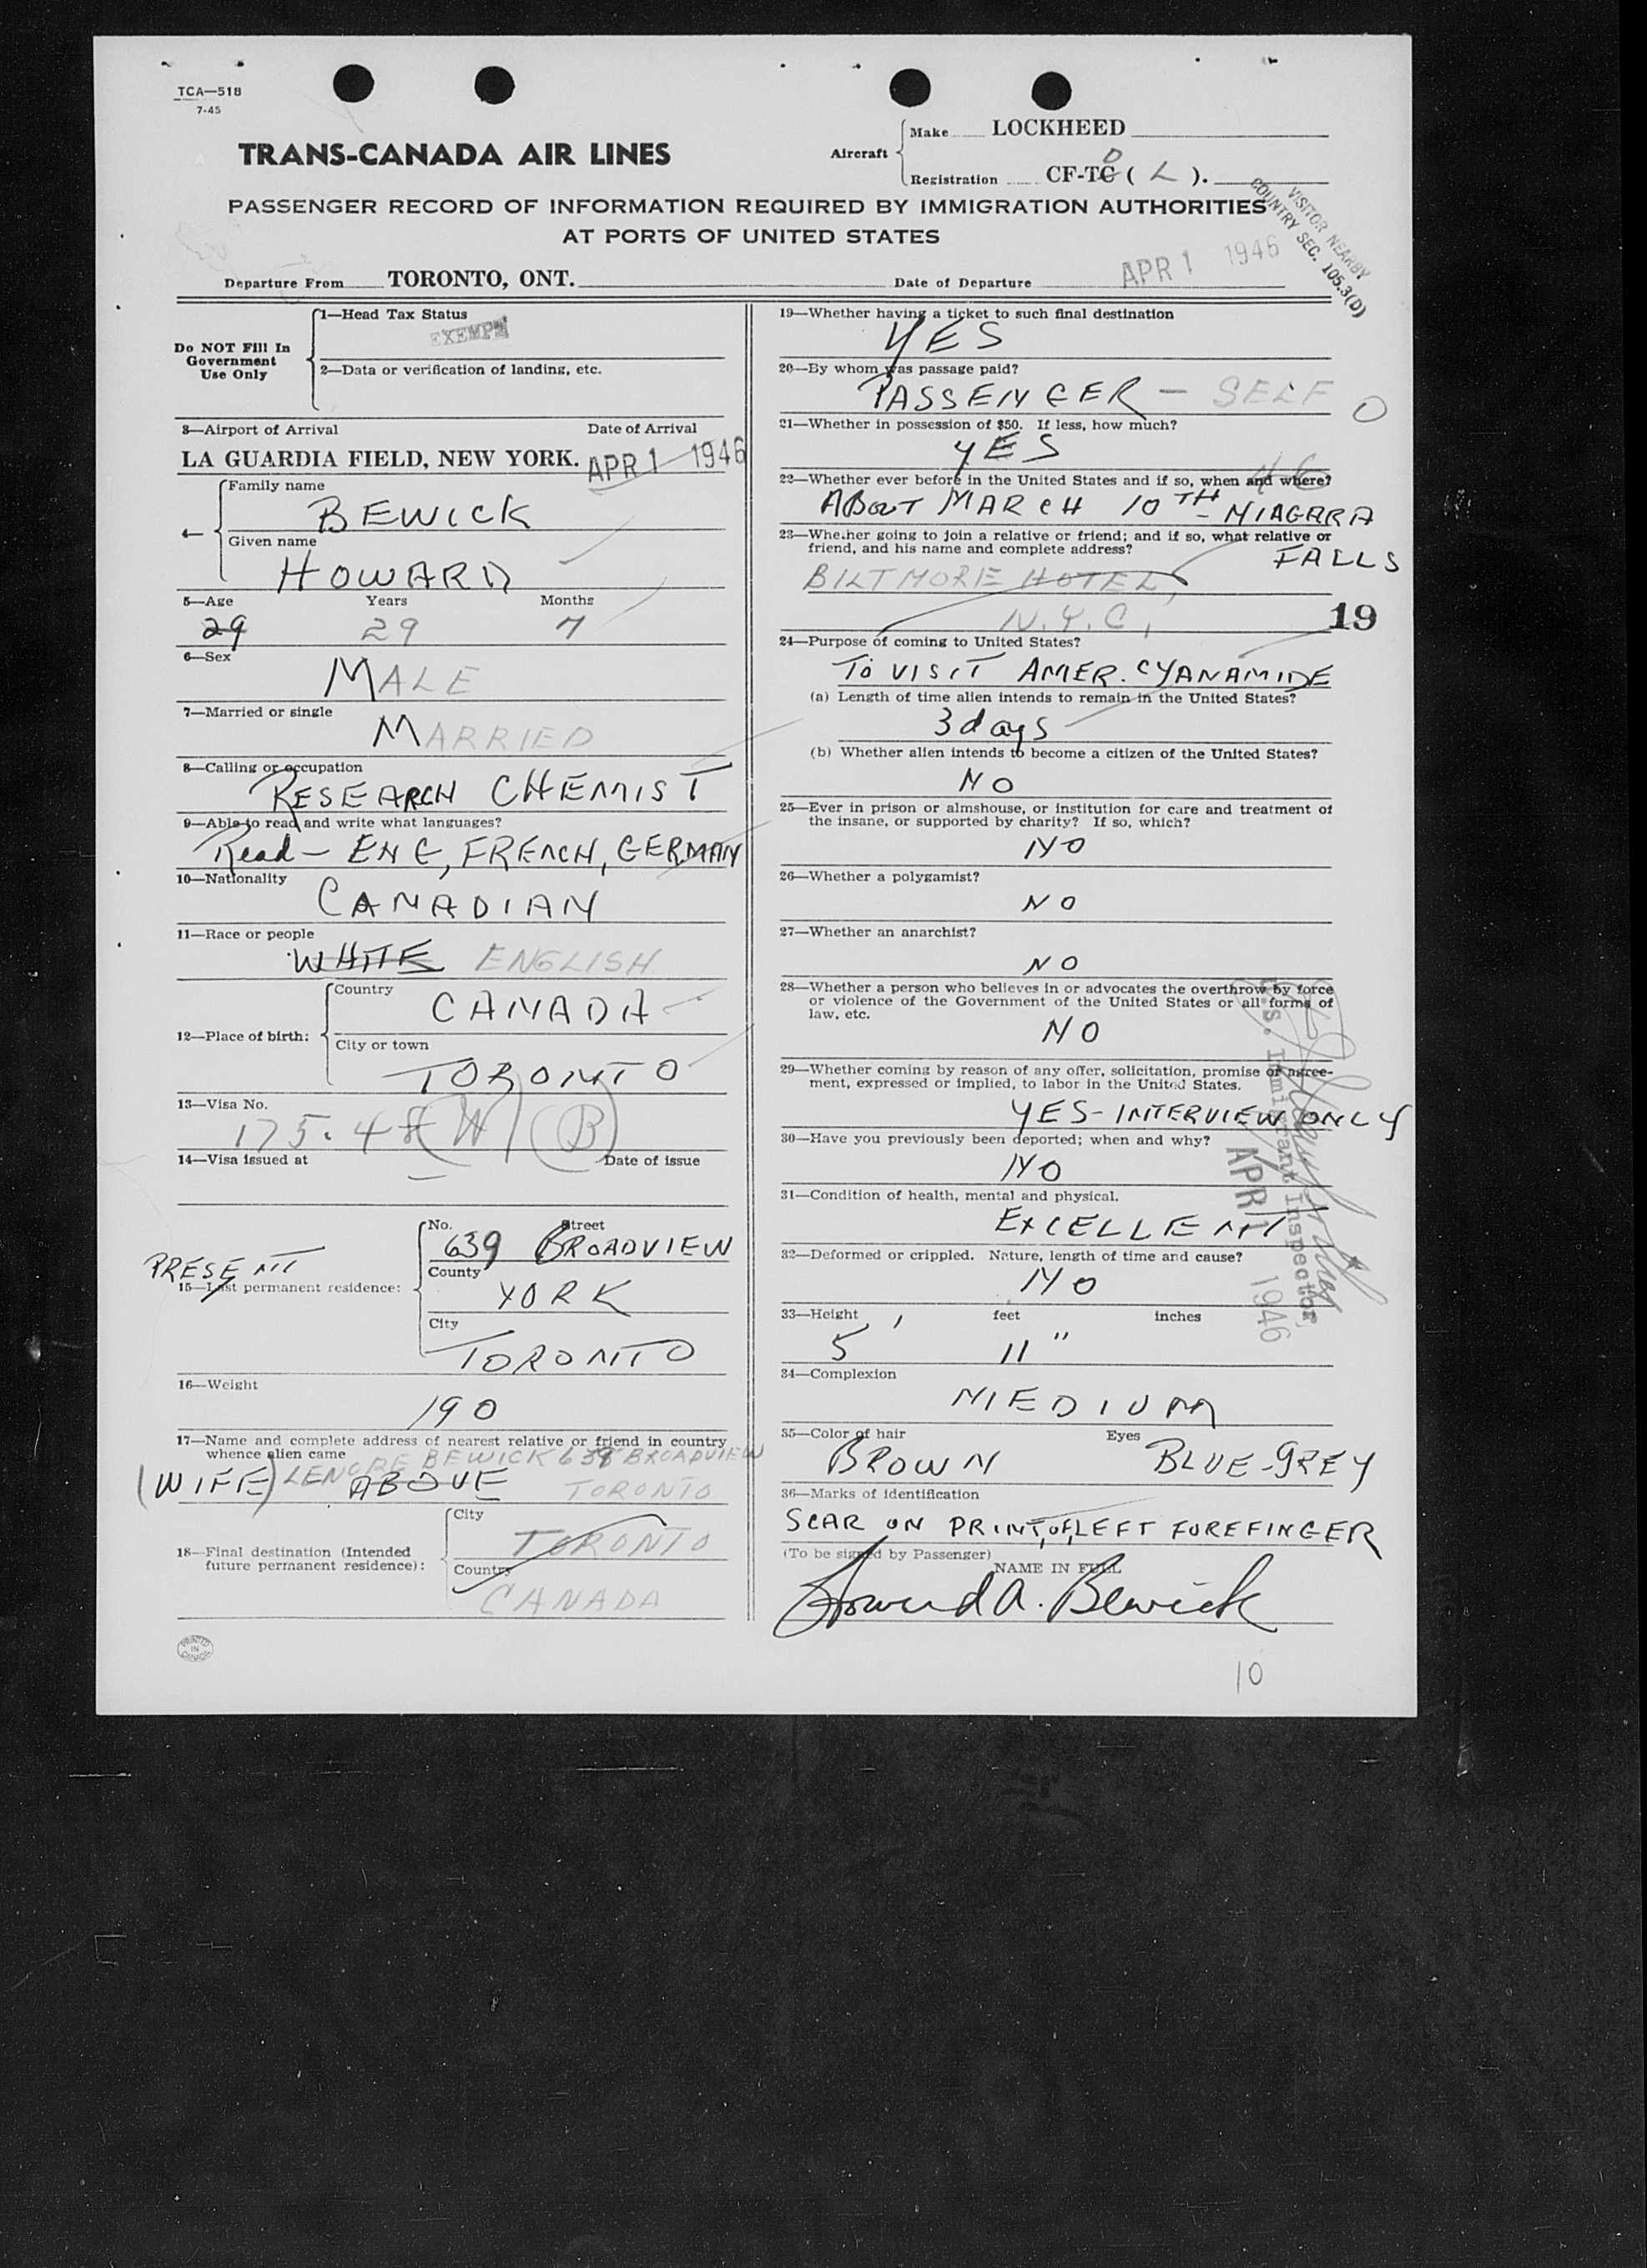 TCA—518
7-45
TRANS-CANADA AIR LINES
Aircraft
Make LOCKHEED
Registration CF-TC D ( L ).
PASSENGER RECORD OF INFORMATION REQUIRED BY IMMIGRATION AUTHORITIES
AT PORTS OF UNITED STATES
VISITOR NEARBY
COUNTRY SEC. 105.3(D)
Departure From TORONTO, ONT. Date of Departure APR 1 1946
Do NOT Fill In
Government
Use Only
1—Head Tax Status
EXEMPT
2—Data or verification of landing, etc.
3—Airport of Arrival Date of Arrival
LA GUARDIA FIELD, NEW YORK. APR 1 1946
4—
Family name
BEWICK
Given name
HOWARD
5—Age Years Months
29 29 7
6—Sex
MALE
7—Married or single
MARRIED
8—Calling or occupation
RESEARCH CHEMIST
9—Able to read and write what languages?
Read - ENG, FRENCH, GERMAN
10—Nationality
CANADIAN
11—Race or people
WHITE ENGLISH
12—Place of birth:
Country
CANADA
City or town
TORONTO
13—Visa No.
175.48 (W) (B)
14—Visa issued at Date of issue
—
PRESENT
15—Last permanent residence:
No. Street
639 BROADVIEW
County
YORK
City
TORONTO
16—Weight
190
17—Name and complete address of nearest relative or friend in country
whence alien came
LENORE BEWICK 639 BROADVIEW
(WIFE) ABOVE TORONTO
18—Final destination (Intended
future permanent residence):
City
TORONTO
Country
CANADA
PRINTED
IN
CANADA
19—Whether having a ticket to such final destination
YES
20—By whom was passage paid?
PASSENGER - SELF O
21—Whether in possession of $50. If less, how much?
YES
22—Whether ever before in the United States and if so, when and where?
46
ABOUT MARCH 10TH - NIAGARA
FALLS
23—Whether going to join a relative or friend; and if so, what relative or
friend, and his name and complete address?
BILTMORE HOTEL,
N.Y.C. 19
24—Purpose of coming to United States?
TO VISIT AMER. CYANAMIDE
(a) Length of time alien intends to remain in the United States?
3 days
(b) Whether alien intends to become a citizen of the United States?
NO
25—Ever in prison or almshouse, or institution for care and treatment of
the insane, or supported by charity? If so, which?
NO
26—Whether a polygamist?
NO
27—Whether an anarchist?
NO
28—Whether a person who believes in or advocates the overthrow by force
or violence of the Government of the United States or all forms of
law, etc.
NO
29—Whether coming by reason of any offer, solicitation, promise or agree-
ment, expressed or implied, to labor in the United States.
YES - INTERVIEW ONLY
U.S. Immigrant Inspector
APR 1 1946
30—Have you previously been deported; when and why?
NO
31—Condition of health, mental and physical.
EXCELLENT
32—Deformed or crippled. Nature, length of time and cause?
NO
33—Height feet inches
5' 11"
34—Complexion
MEDIUM
35—Color of hair Eyes
BROWN BLUE-GREY
36—Marks of identification
SCAR ON PRINT, OF, LEFT FOREFINGER
(To be signed by Passenger)
NAME IN FULL
Howard A. Bewick
10